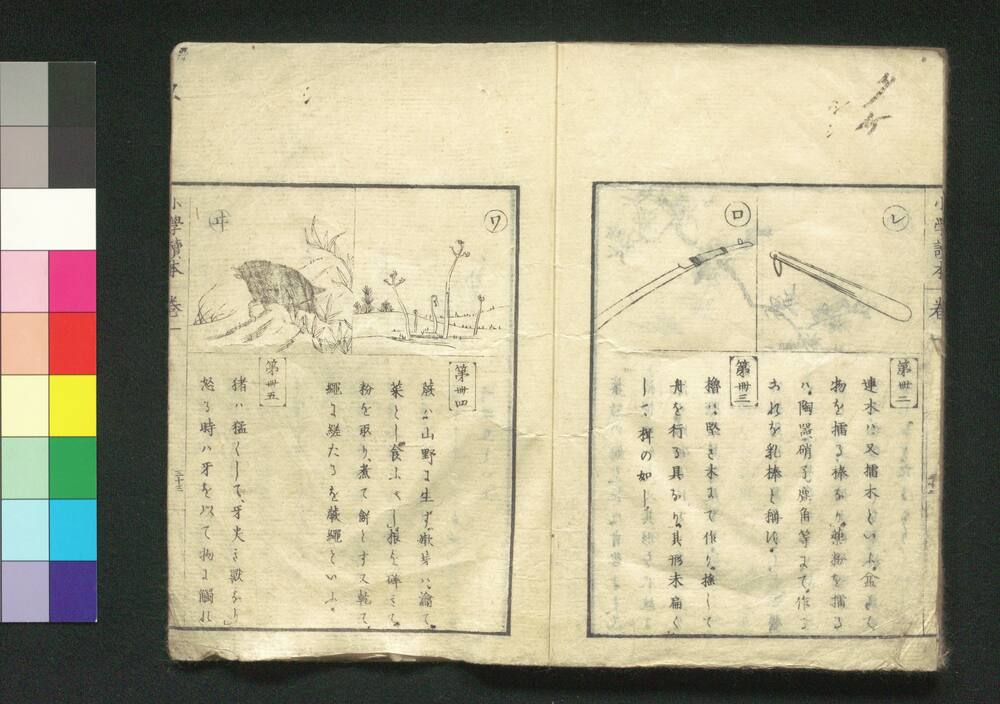 小學讀本 卷一
レ
第卅二
連木ハ又擂木といふ盆
物を擂る棒なり藥粉を擂る
ハ陶器硝子鹿角等にて作る
おれを乳棒と稱ひ
ロ
第卅三
櫓ハ堅き木にて作り
舟を行る具なり其形末扁く
して樺の如し
小學讀本 卷一
ワ
第卅四
蕨ハ山野に生ず嫩芽ハ瀹て
菜とし食ふべし根を碎きて
粉を取り煮て餅とす又乾て
繩に縒たるを蕨繩といふ
ヰ
第卅五
猪ハ猛くして牙尖き獸なり
怒る時ハ牙を以て物に觸れ
二十三